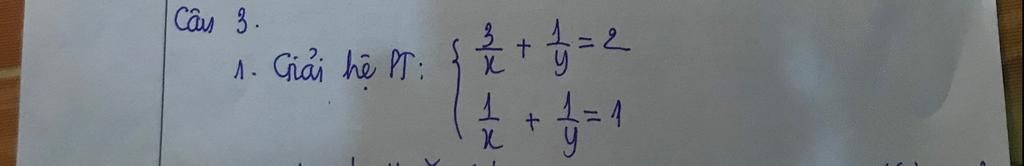 Câu 3.
1. Giải hệ PT: { 3/x + 1/y = 2
1/x + 1/y = 1